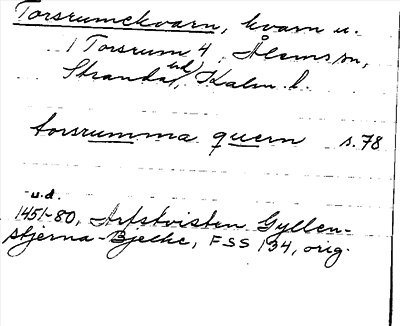 Torsrumekvarn, kvarn u.
/ Torsrum 4, Ålems sn,
Stranda hd, Kalm. l.
torsrumma quern s. 78
u.d.
1451-80, Arfstvisten Gyllen-
stjerna-Bjelke, FSS 134, orig.